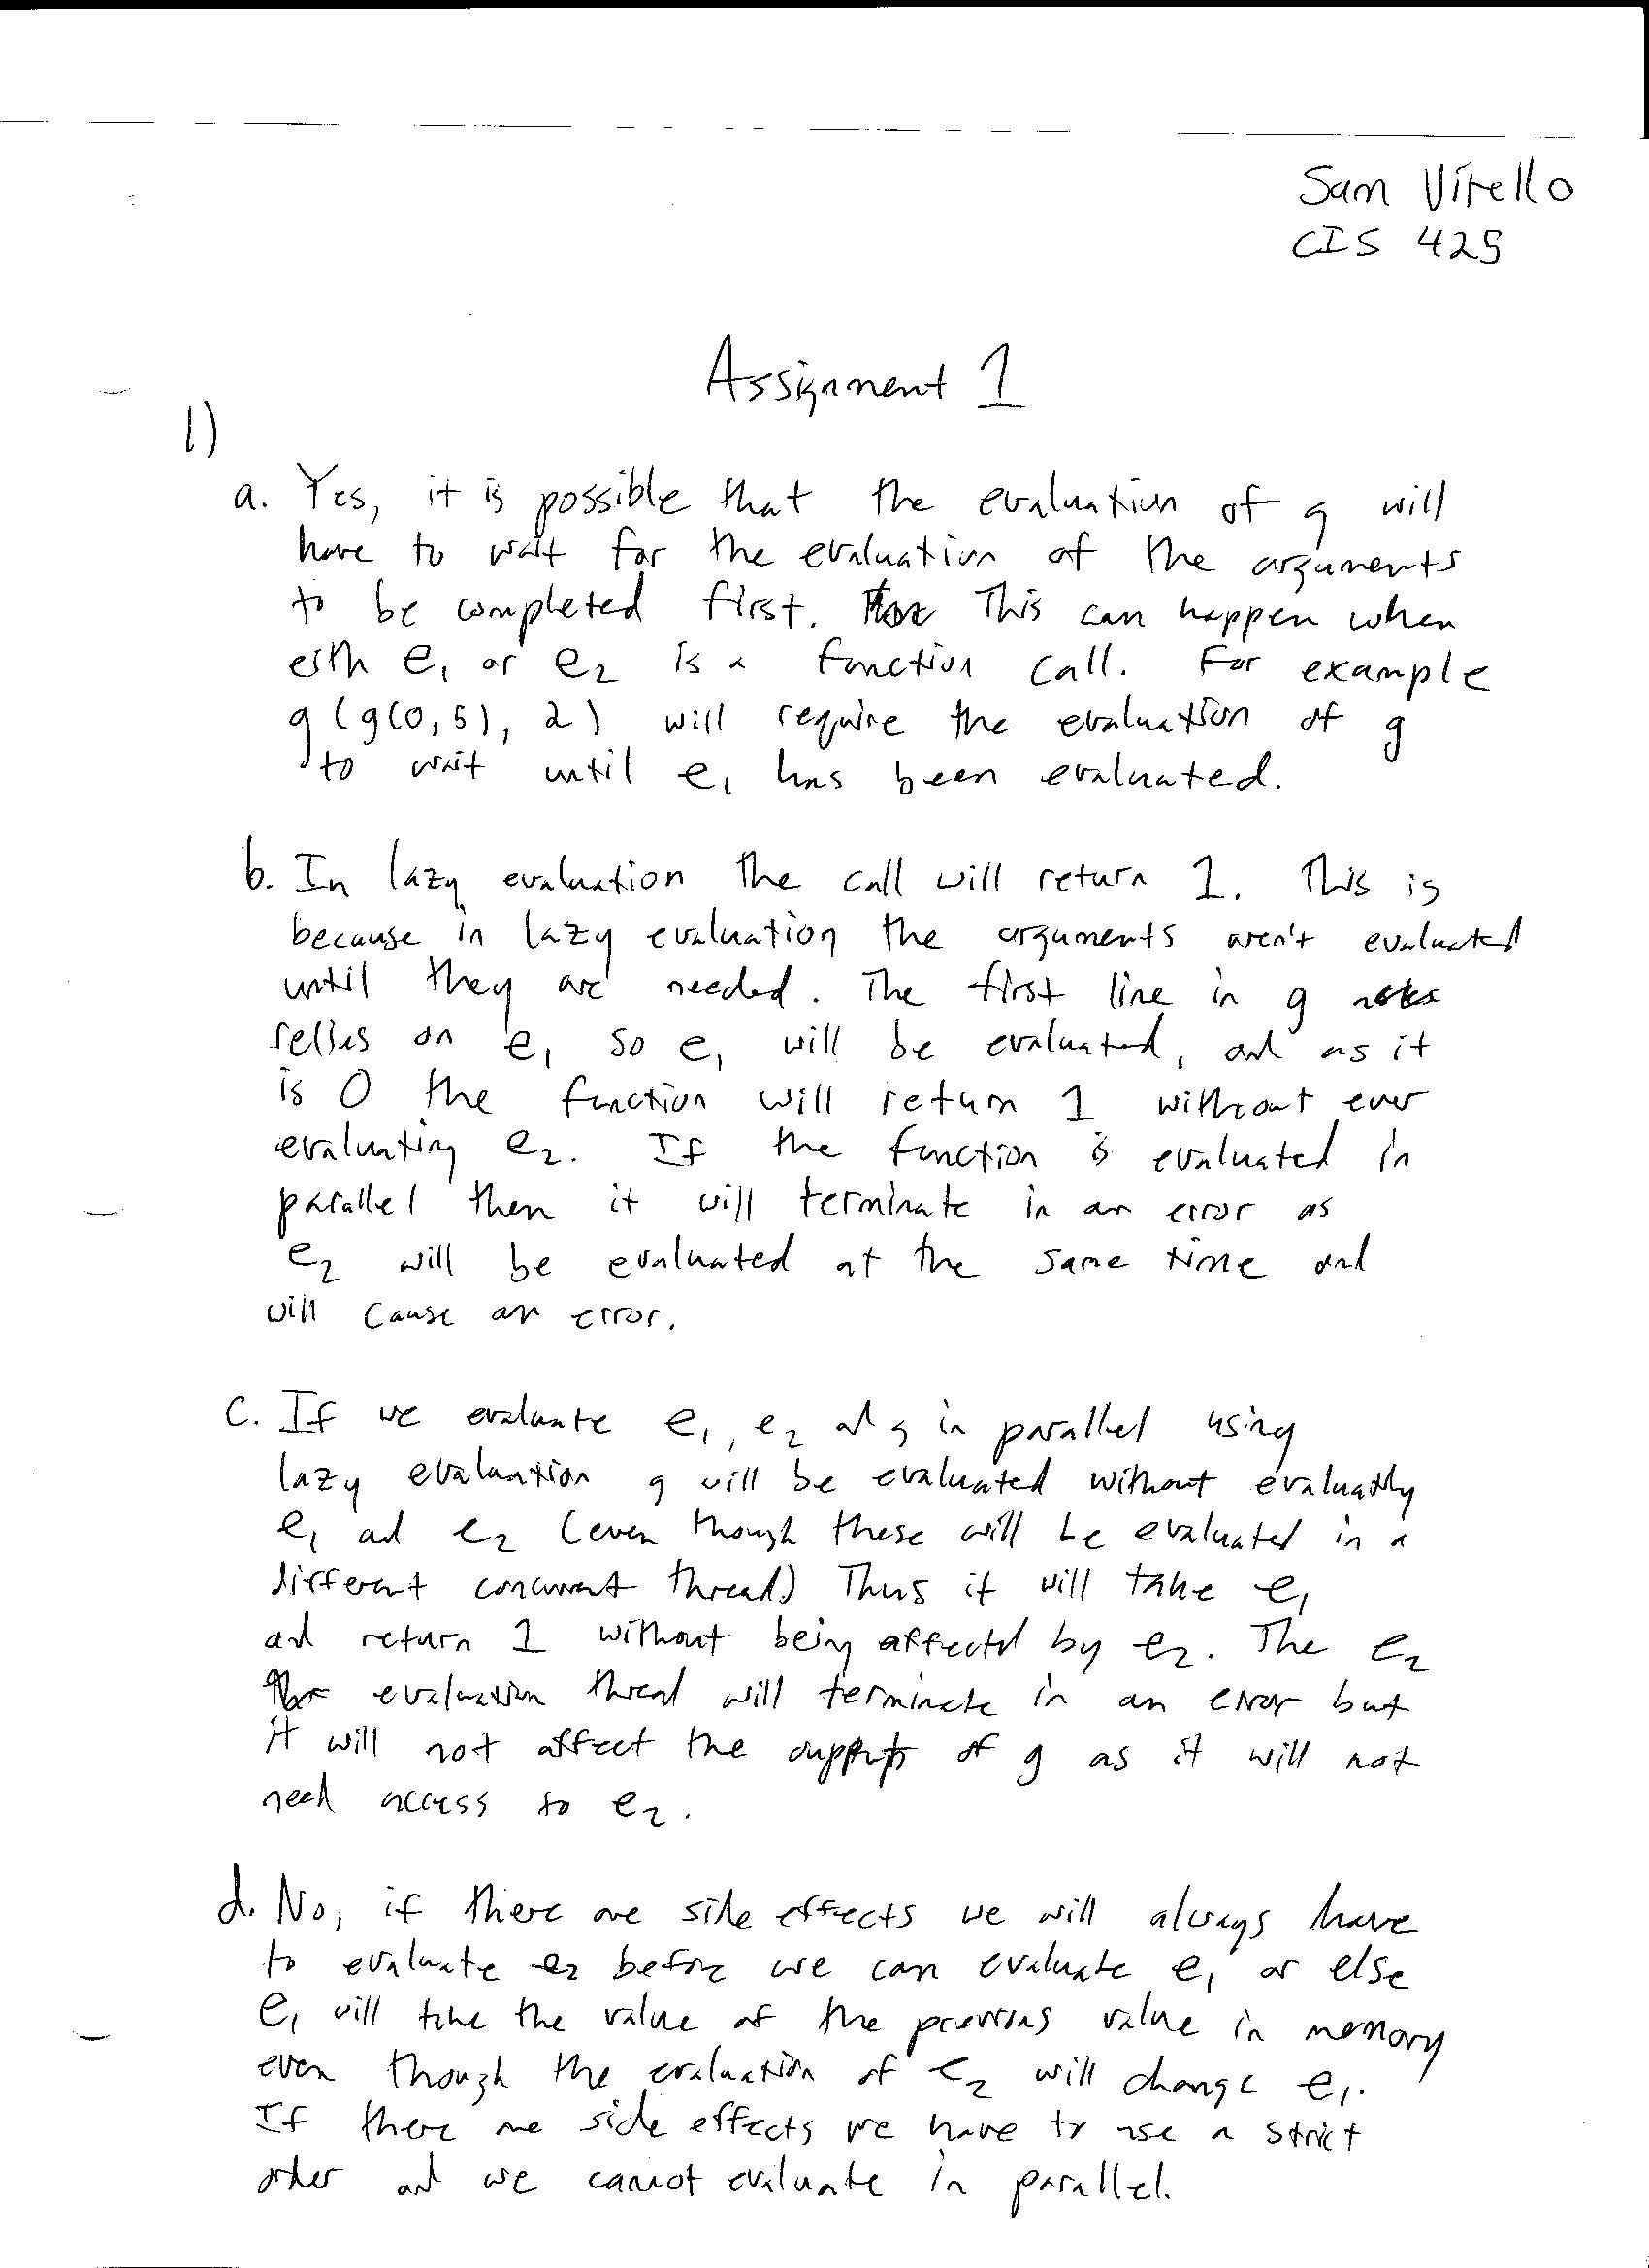 Sam Vitello
CIS 425
Assignment 1
1)
a. Yes, it is possible that the evaluation of g will
have to wait for the evaluation of the arguments
to be completed first. This can happen when
eith e1 or e2 is a function call. For example
g(g(0,5), 2) will require the evaluation of g
to wait until e1 has been evaluated.
b. In lazy evaluation the call will return 1. This is
because in lazy evaluation the arguments aren't evaluated
until they are needed. The first line in g
relies on e1 so e1 will be evaluated, and as it
is 0 the function will return 1 without ever
evaluating e2. If the function is evaluated in
parallel then it will terminate in an error as
e2 will be evaluated at the same time and
will cause an error.
c. If we evaluate e1, e2 and g in parallel using
lazy evaluation g will be evaluated without evaluating
e1 and e2 (even though these will be evaluated in a
different concurrent thread) Thus it will take e1
and return 1 without being affected by e2. The e2
evaluation thread will terminate in an error but
it will not affect the of g as it will not
need access to e2.
d. No, if there are side effects we will always have
to evaluate e2 before we can evaluate e1 or else
e1 will take the value of the previous value in memory
even though the evaluation of e2 will change e1.
If there are side effects we have to use a strict
order and we cannot evaluate in parallel.